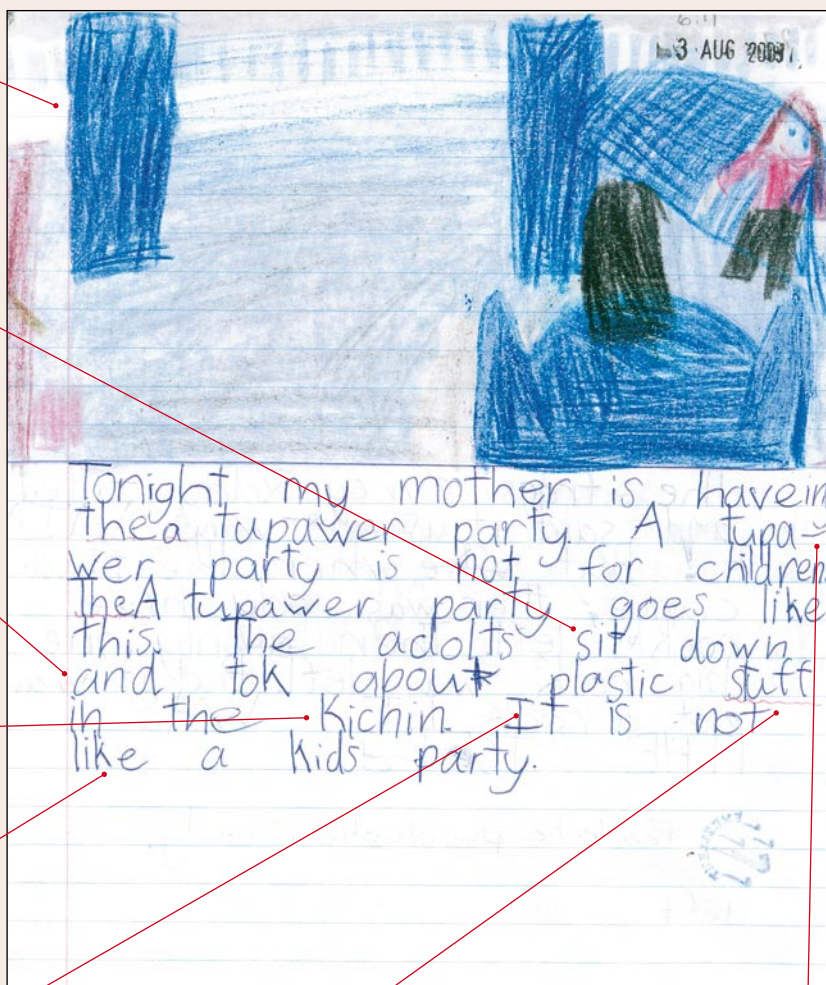 6.11
3 AUG 2009
Tonight my mother is havein
thea tupawer party. A tupa-
wer party is not for children
TheA tupawer party goes like
this. The adolts sit down
and tok about plastic stuff
in the Kichin. It is not
like a kids party.